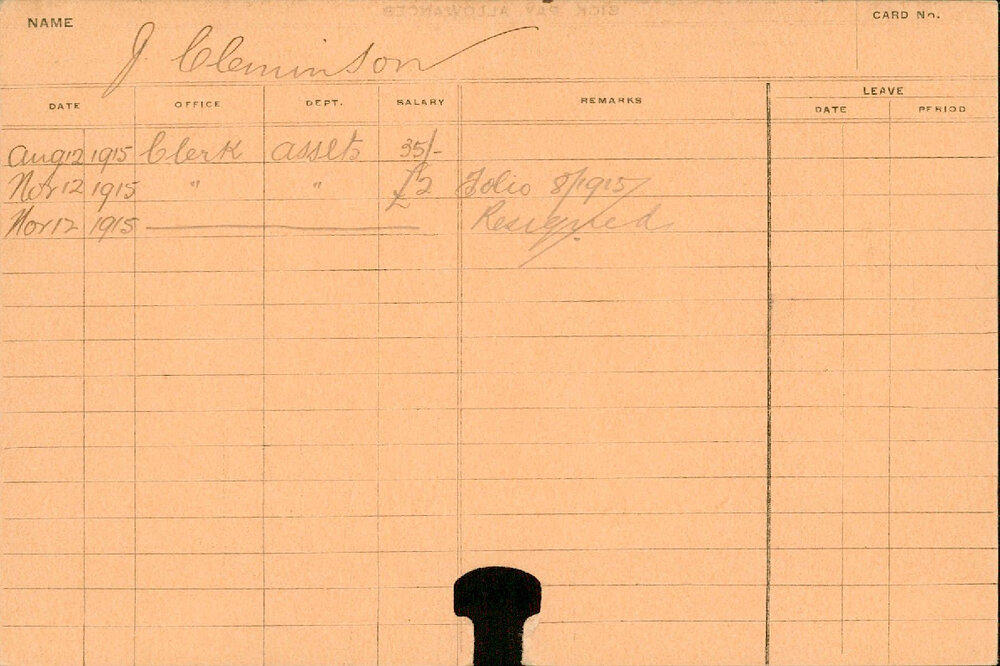 SICK PAY ALLOWANCES
NAME
CARD No.
J Cleminson
DATE OFFICE DEPT. SALARY REMARKS LEAVE
DATE PERIOD
Aug 12 1915 Clerk assets 35/-
Nov 12 1915 " " £2 Folio 8/1915
Nov 12 1915 Resigned